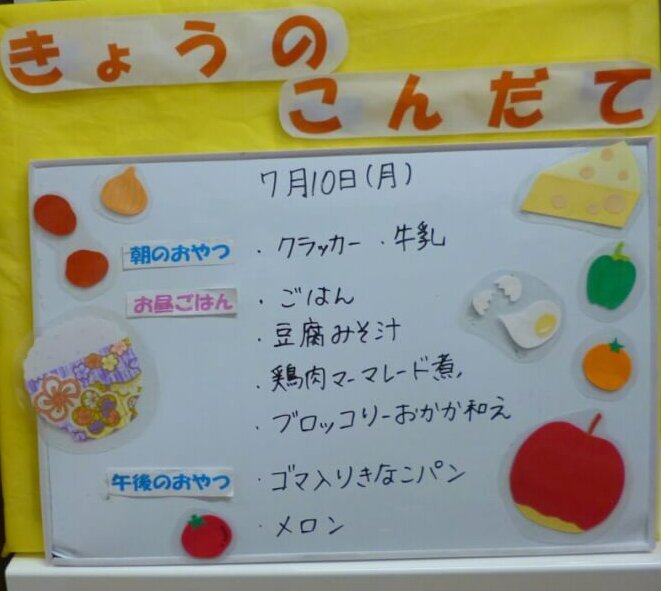 きょうの
こんだて
7月10日(月)
朝のおやつ ・クラッカー ・牛乳
お昼ごはん ・ごはん
・豆腐みそ汁
・鶏肉マーマレード煮
・ブロッコリーおかか和え
午後のおやつ ・ゴマ入りきなこパン
・メロン